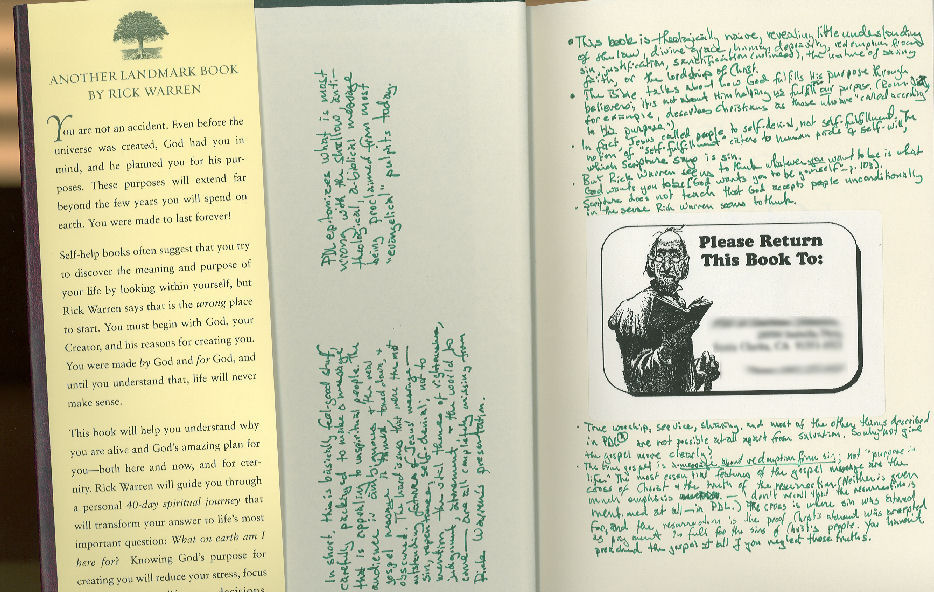 ANOTHER LANDMARK BOOK
BY RICK WARREN
You are not an accident. Even before the
universe was created, God had you in
mind, and he planned you for his pur-
poses. These purposes will extend far
beyond the few years you will spend on
earth. You were made to last forever!
Self-help books often suggest that you try
to discover the meaning and purpose of
your life by looking within yourself, but
Rick Warren says that is the wrong place
to start. You must begin with God, your
Creator, and his reasons for creating you.
You were made by God and for God, and
until you understand that, life will never
make sense.
This book will help you understand why
you are alive and God's amazing plan for
you—both here and now, and for eter-
nity. Rick Warren will guide you through
a personal 40-day spiritual journey that
will transform your answer to life's most
important question: What on earth am I
here for? Knowing God's purpose for
creating you will reduce your stress, focus
decisions
PDL epitomizes what is most
wrong with the shallow, anti-
theological, a-biblical message
being proclaimed from most
"evangelical" pulpits today.
In short, this is basically feel-good stuff
carefully packaged to make a message
that is appealing to unspiritual people. The
audience is ambiguous & the real
gospel message is trimmed, toned down &
obscured. The hard issues that were the most
outstanding features of Jesus' message—
sin, repentance, self-denial, not to
mention the vital themes of righteousness,
judgment, atonement, & the world to
come—are all completely missing from
Rick Warren's presentation.
• This book is theologically naive, revealing little understanding
of the law, divine grace, human depravity, redemption from
sin, justification, sanctification (holiness), the nature of saving
faith, or the lordship of Christ.
• The Bible talks about how God fulfills His purpose through
believers; it's not about Him helping us fulfill our purpose. (Rom.
for example, describes Christians as those who are "called according
to His purpose.")
• In fact, Jesus called people to self-denial, not self-fulfillment. The
notion of "self-fulfillment" caters to human pride & self-will,
which Scripture says is sin.
• But Rick Warren seems to think whatever you want to be is what
God wants you to be ("God wants you to be yourself"—p. 103).
• Scripture does not teach that God accepts people unconditionally
in the sense Rick Warren seems to think.
Please Return
This Book To:
• True worship, service, sharing, and most of the other things described
in PDL are not possible at all apart from salvation. So why not give
the gospel more clearly?
• The true gospel is a message about redemption from sin; not "purpose in
life." The most essential features of the gospel message are the
cross of Christ & the truth of the resurrection (Neither is given
much emphasis — I don't recall that the resurrection is
mentioned at all—in PDL.) The cross is where sin was atoned
for, and the resurrection is the proof Christ's atonement was accepted
as payment in full for the sins of Christ's people. You haven't
preached the gospel at all if you neglect those truths.